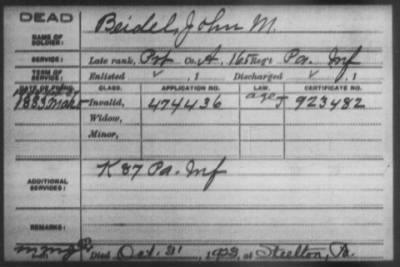 DEAD
Beidel, John M.
NAME OF SOLDIER:
SERVICE: Late rank, Pvt Co. A, 165 Regt Pa. Inf
TERM OF SERVICE: Enlisted ✓, 1 Discharged ✓, 1
DATE OF FILING. CLASS. APPLICATION NO. LAW. CERTIFICATE NO.
1883 Invalid, 474436 age 923482
Widow,
Minor,
K 87 Pa. Inf
ADDITIONAL SERVICES:
REMARKS:
Died Oct. 31, at Steelton, Pa.